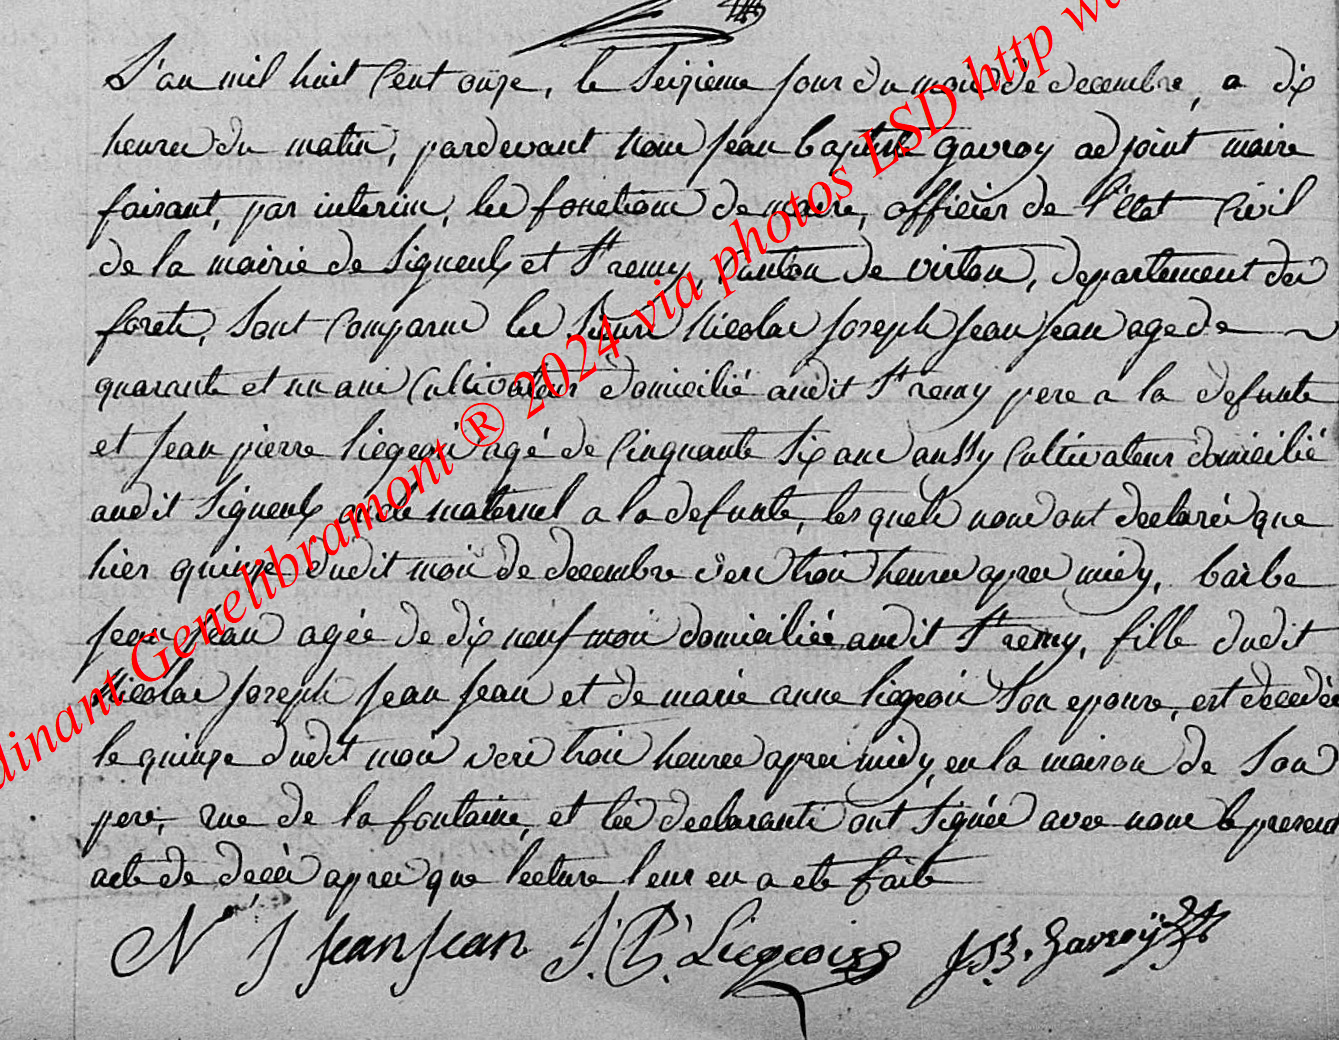 L'an mil huit Cent onze, le Seizieme jour du mois de decembre, a dix
heures du matin, pardevant nous Jean baptiste gavroy adjoint maire
faisant, par interim, les fonctions de maire, officier de l'état Civil
de la mairie de Signeulx et St remy, Canton de virton, departement des
forets, Sont Comparus les Sieurs Nicolas Joseph Jean Jean age de
quarante et un ans Cultivateur domicilié audit St remy pere a la defunte
et Jean pierre liegeois agé de Cinquante Six ans aussy Cultivateur domicilié
audit Signeulx oncle maternel a la defunte, lesquels nous ont declarés que
hier quinze dudit mois de decembre vers trois heures apres midy, barbe
Jean Jean agée de dix neuf mois domiciliée audit St remy, fille dudit
Nicolas Joseph Jean Jean et de marie anne liegeois Son epouse, est decedée
le quinze dudit mois vers trois heures apres midy, en la maison de Son
pere, rue de la fontaine, et les declarants ont Signés avec nous le present
acte de decès apres que lecture leur en a eté faite
N J Jean Jean J. P. Liegeois J. B. Gavroÿ
dinant Genelibramont ® 2024 via photos LSD http w